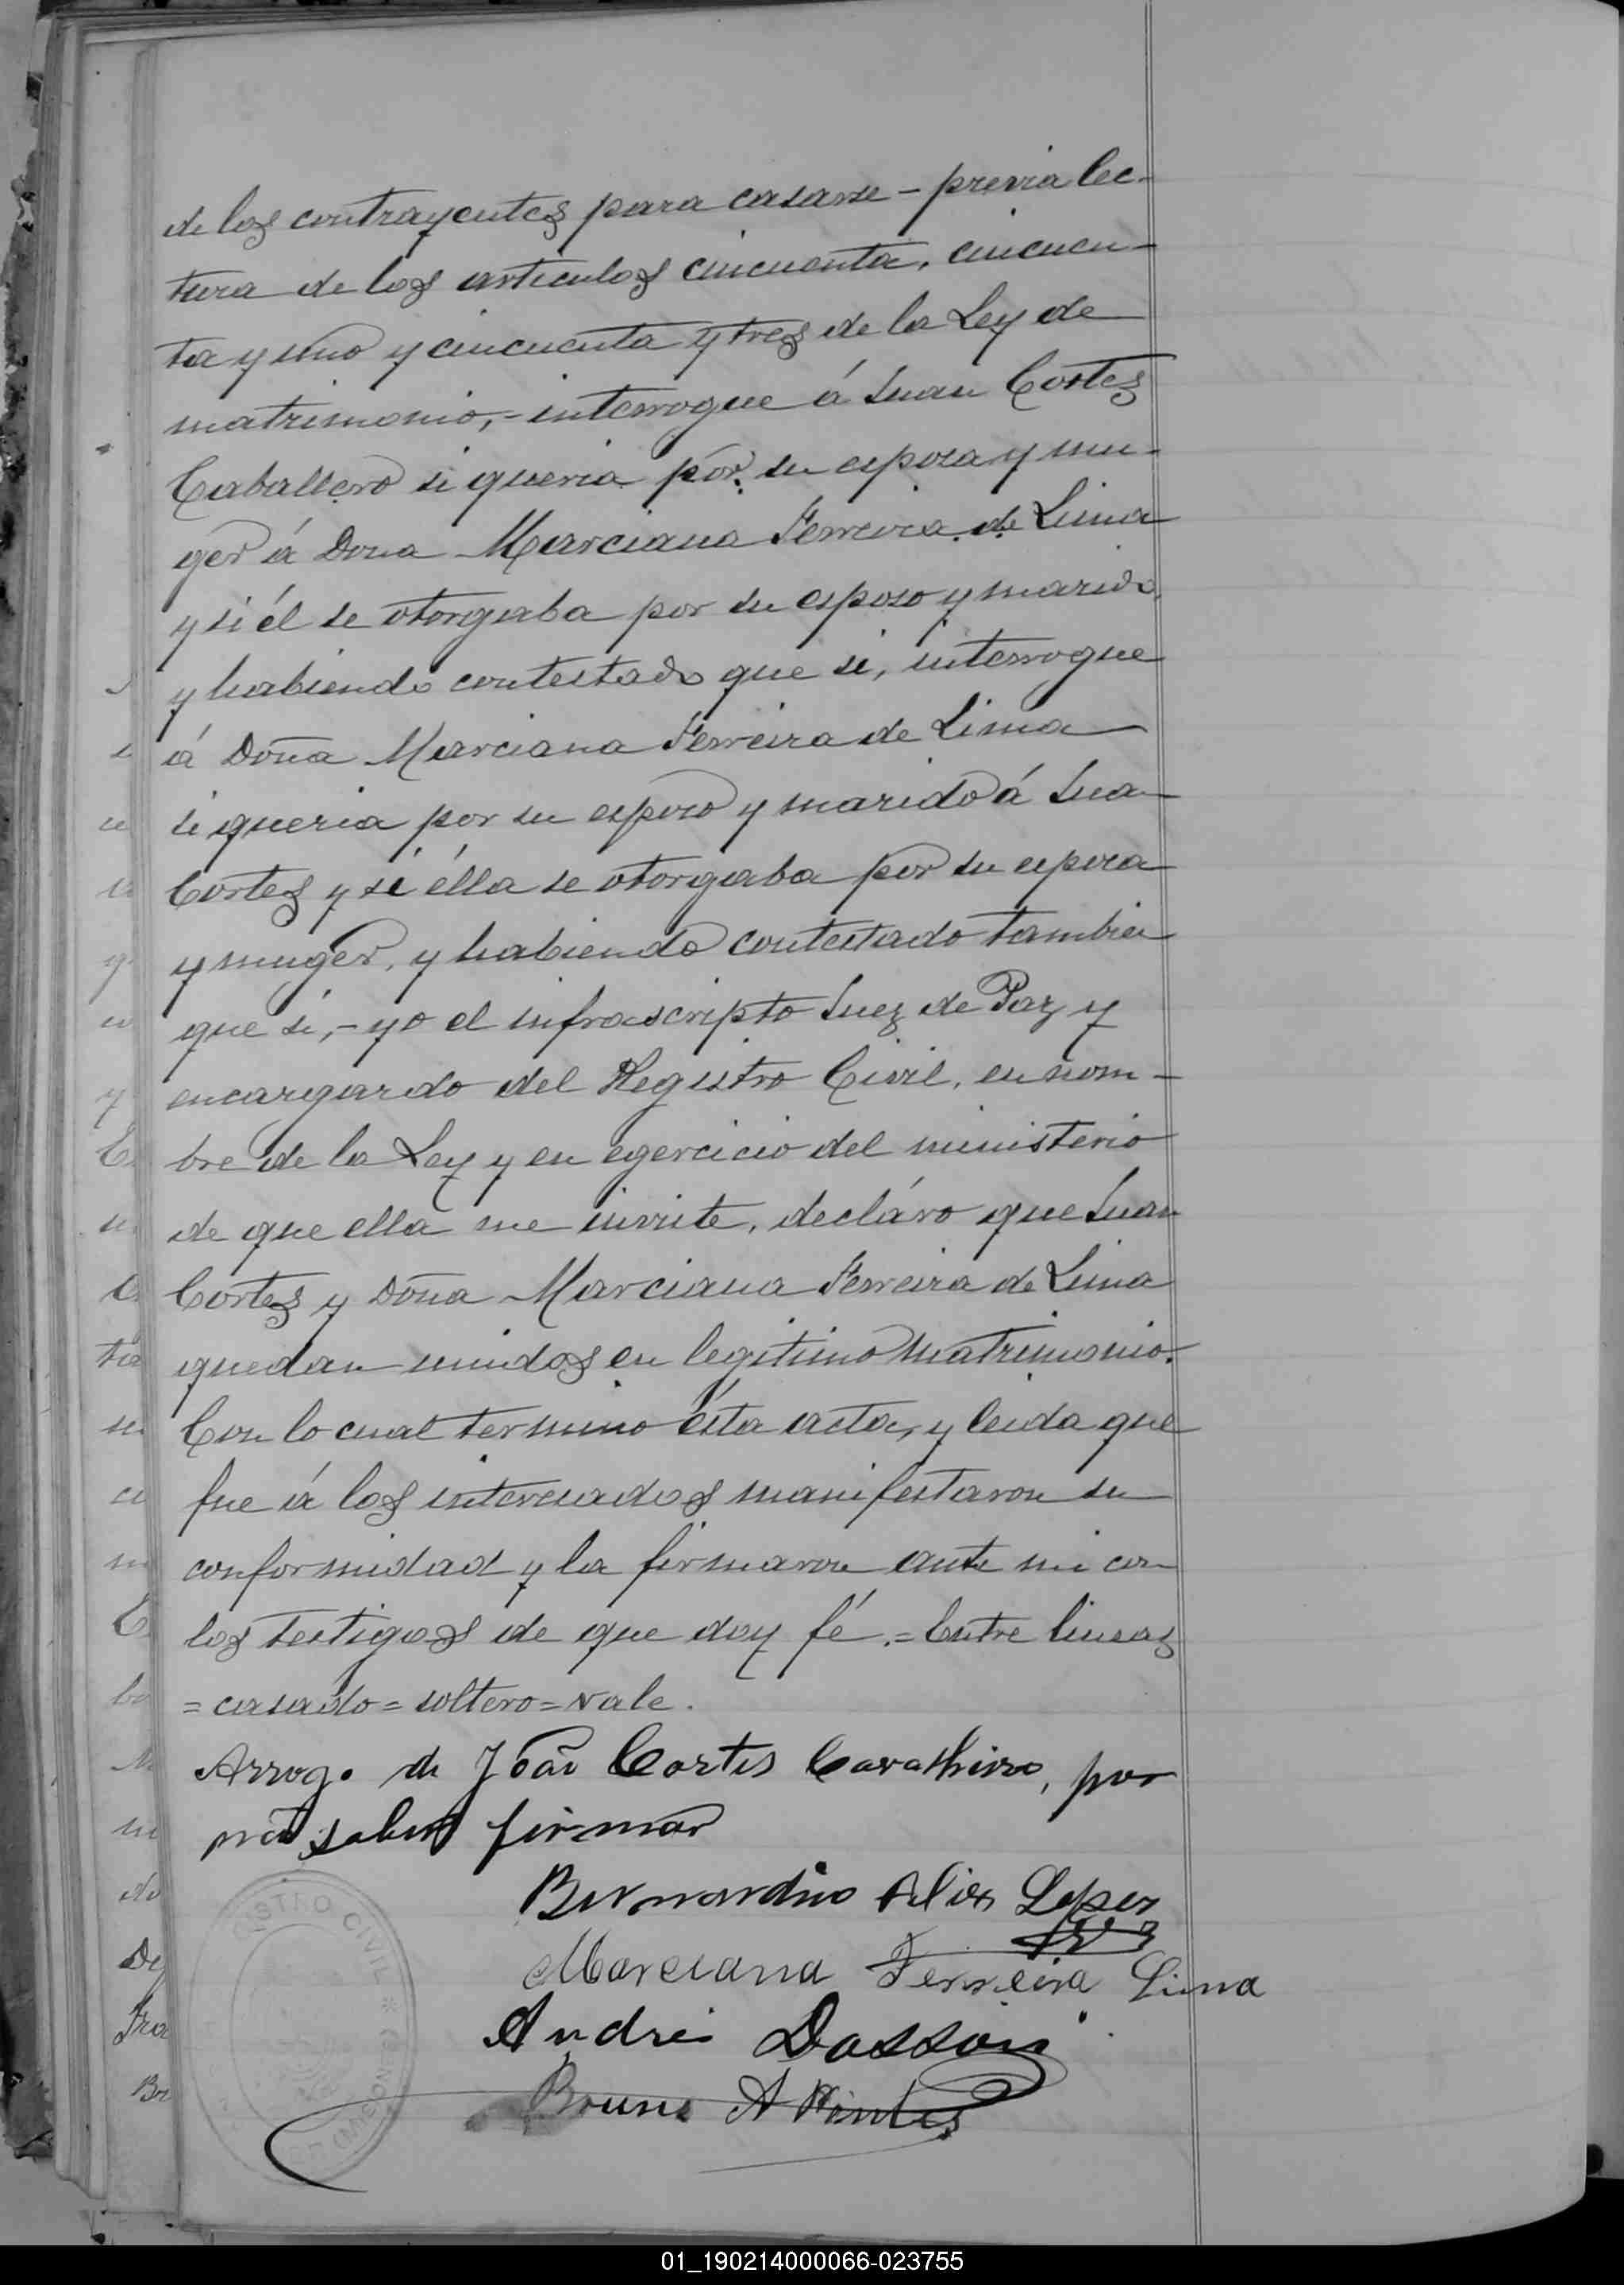 de los contrayentes para casarse – previa lec-
tura de los articulos cincuenta, cincuen-
ta y uno y cincuenta y tres de la Ley de
matrimonio, – interrogue á Juan Cortes
Caballero si queria por su esposa y mu-
ger á Dona Marciana Ferreira de Lima
y si él se otorgaba por su esposo y marido,
y habiendo contestado que si, interrogue
á Doña Marciana Ferreira de Lima
si queria por su esposo y marido á Jua
Cortes y si élla se otorgaba por su esposa
y muger, y habiendo contestado tambien
que si, – yo el infrascripto Juez de Paz y
encargardo del Registro Civil, en nom-
bre de la Ley y en egercicio del ministerio
de que ella me inviste, decláro que Juan
Cortes y Doña Marciana Ferreira de Lima
quedan unidos en legitimo matrimonio.
Con lo cual termino ésta acta, y leida que
fue á los interesados manifestaron su
conformidad y la firmaron ante mi con
los testigos de que doy fé. = Entre lineas
= casado = soltero = vale.
Arrogo de João Cortes Cavalheiro, por
não saber firmar
Bernardino Lopez
Marciana Ferreira Lima
Andrés
Bruno A
REGISTRO CIVIL
01_190214000066-023755